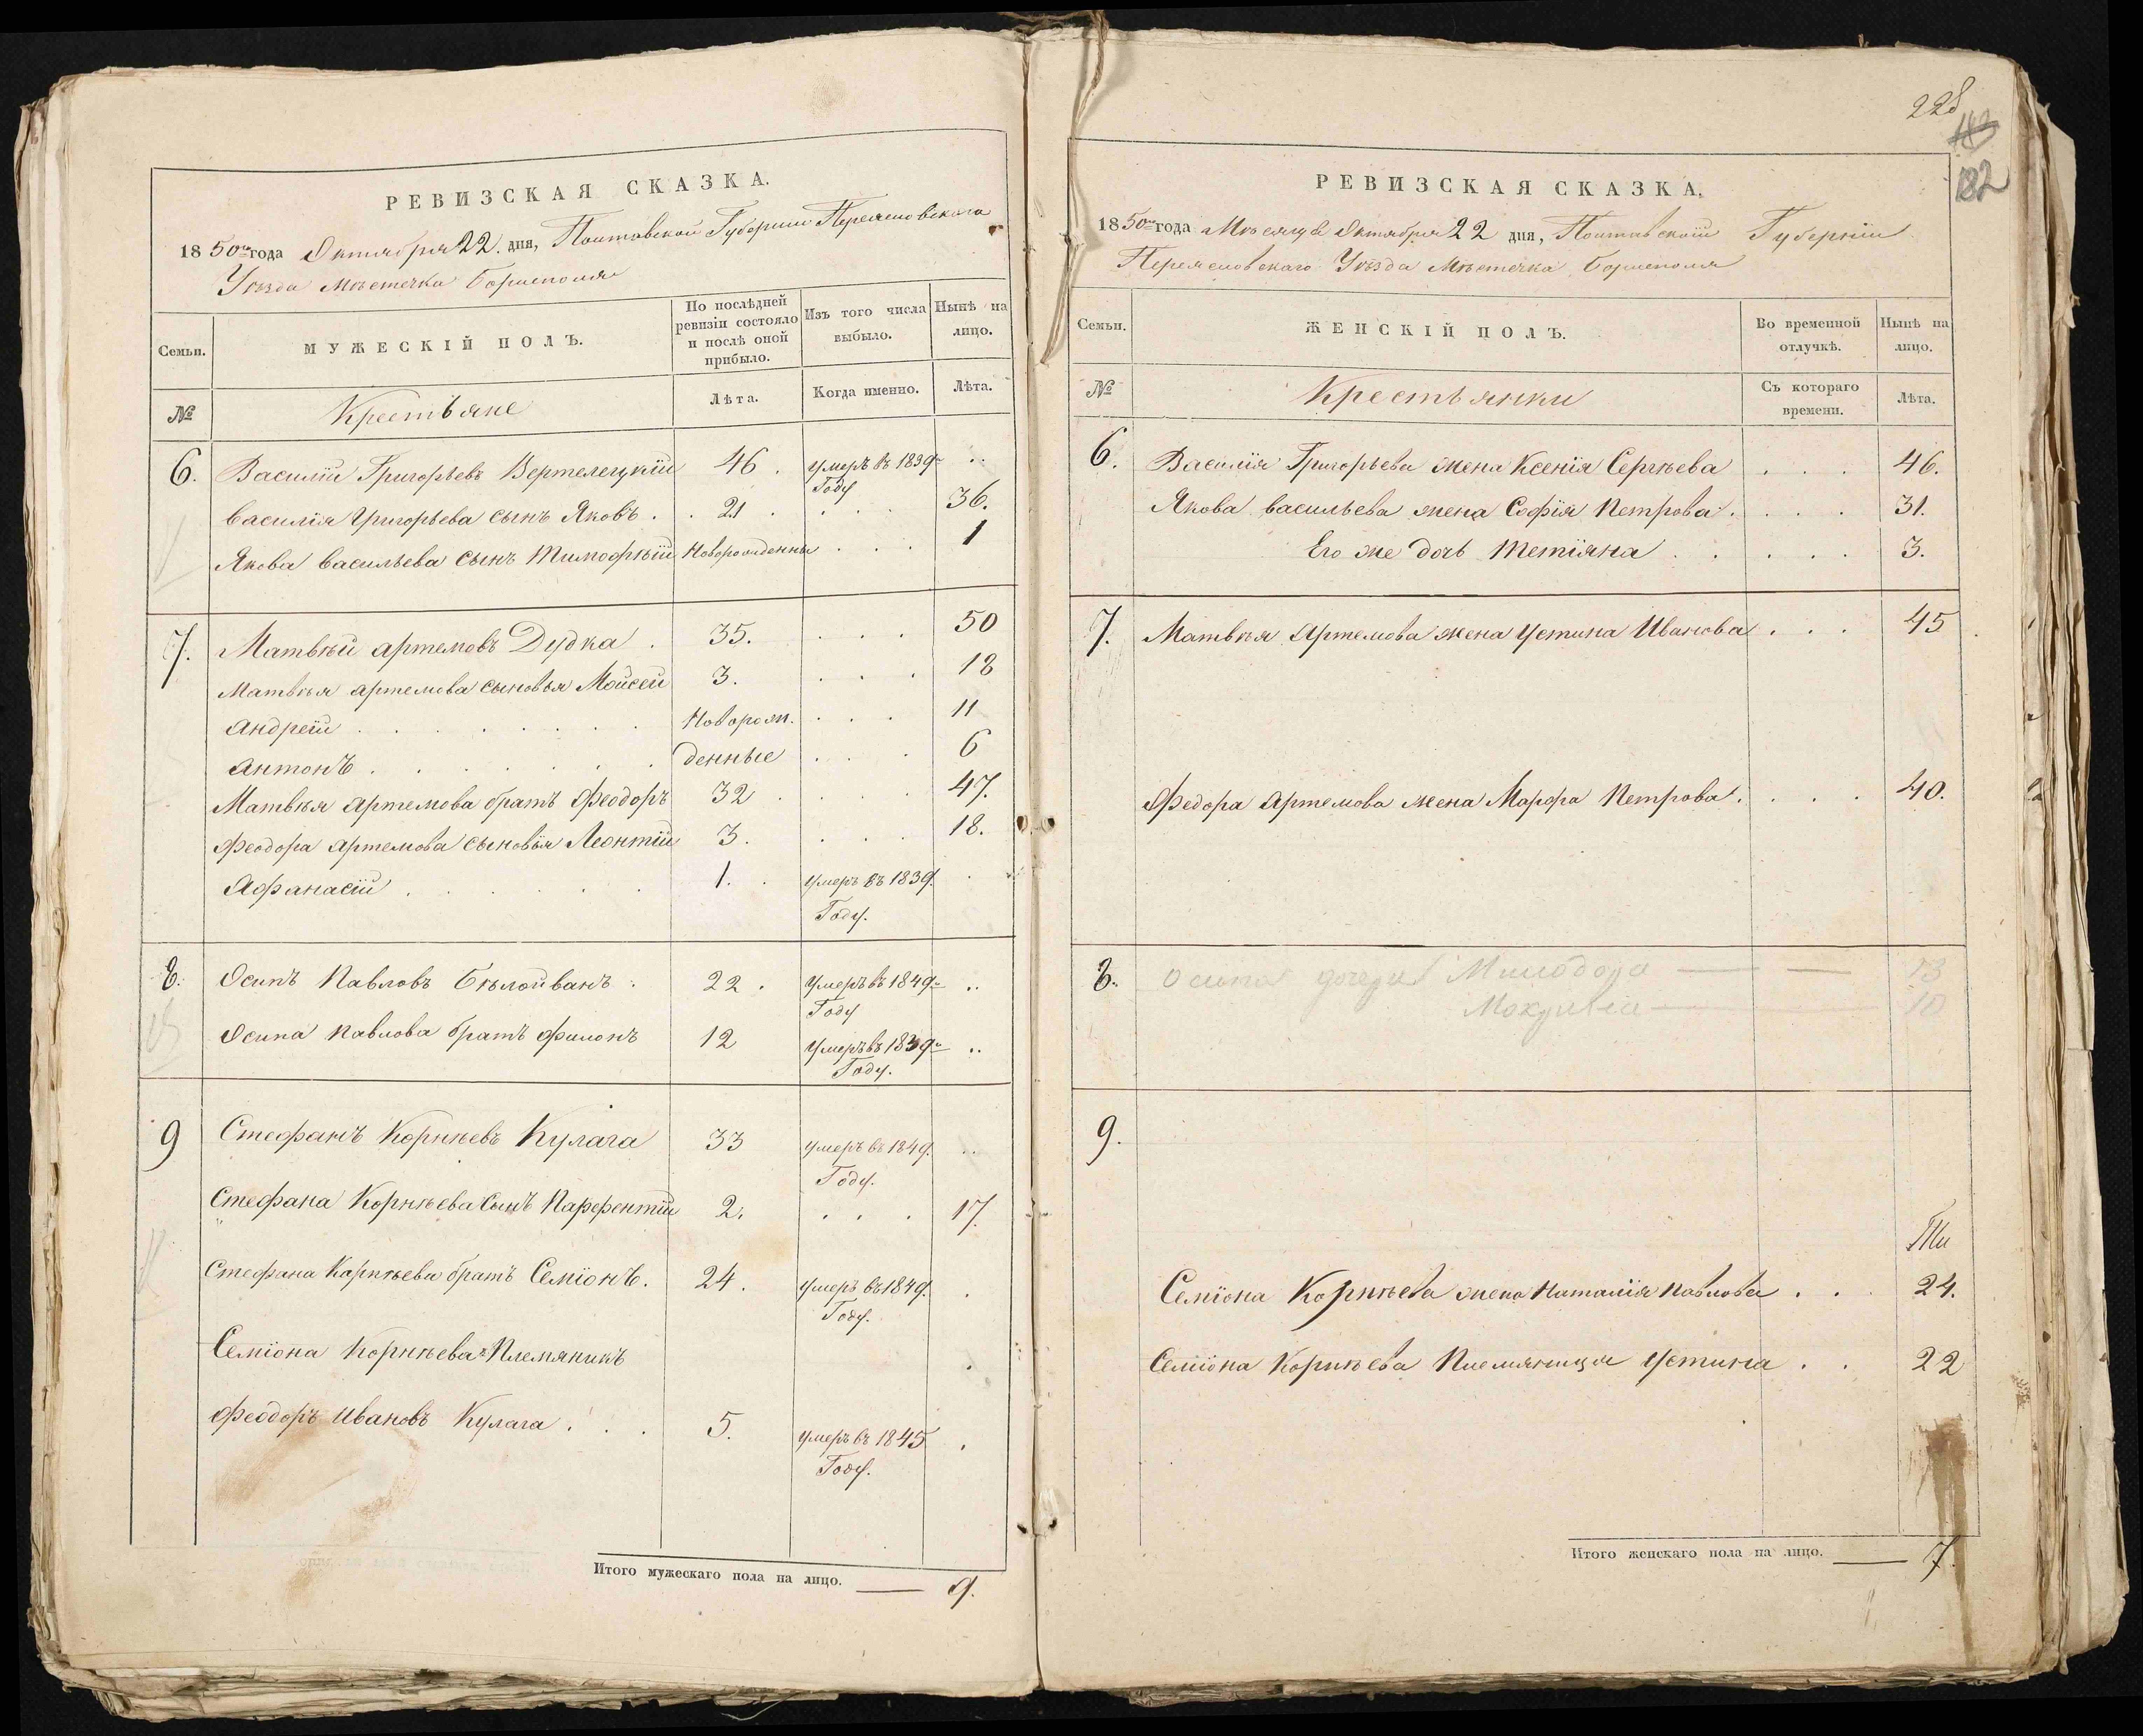 РЕВИЗСКАЯ СКАЗКА.
1850го года Октября 22. дня, Полтавской Губернии Переясловскаго
Уѣзда Мѣстечка Борисполя
Семьи.
МУЖЕСКІЙ ПОЛЪ.
По послѣдней ревизіи состояло и послѣ оной прибыло.
Изъ того числа выбыло.
Нынѣ на лицо.
№
Крестьяне
Лѣта.
Когда именно.
Лѣта.
6. Василій Григорьевъ Вертелецкій 46. умеръ въ 1839го ..
Году
Василія Григорьева сынъ Яковъ . . 21 . . . . 36.
Якова Васильева сынъ Тимофѣй Новорожденный . . . 1
7. Матвѣй Артемовъ Дудка . 35. . . . 50
Матвѣя Артемова сыновья Мойсей 3. . . . 18
Андрей . . . . . . Новорож- . . . 11
Антонъ . . . . . . денные . . . 6
Матвѣя Артемова братъ Феодоръ 32 . . . . 47.
Феодора Артемова сыновья Леонтій 3. . . . 18.
Афанасій . . . . . 1. . умеръ въ 1839. .
Году.
8. Осипъ Павловъ Бѣлоиванъ . 22 . Умеръ въ 1849го ..
Году
Осипа Павлова братъ Филонъ 12 Умеръ въ 1839го ..
Году.
9 Стефанъ Корнѣевъ Кулага 33 умеръ въ 1849. ..
Году.
Стефана Корнѣева Сынъ Парфентій 2. . . . 17.
Стефана Корнѣева братъ Семіонъ. 24. умеръ въ 1849. .
Году.
Семіона Корнѣева Племяникъ .
Феодоръ Ивановъ Кулага . . . 5. умеръ въ 1845 .
Году.
Итого мужескаго пола на лицо. — 9.
228
113
182
РЕВИЗСКАЯ СКАЗКА.
1850го года Мѣсяца Октября 22 дня, Полтавской Губерніи
Переясловскаго Уѣзда Мѣстечка Борисполя
Семьи.
ЖЕНСКІЙ ПОЛЪ.
Во временной отлучкѣ.
Нынѣ на лицо.
№
Крестьянки
Съ котораго времени.
Лѣта.
6. Василія Григорьева жена Ксенія Сергѣева . . . 46.
Якова Васильева жена Софія Петрова . . . . 31.
Его же дочь Тетіяна . . . . . 3.
7. Матвѣя Артемова жена Устина Иванова . . . 45
Федора Артемова жена Марфа Петрова . . . . 40.
8. Осипа дочери Милодора — — 13
— 10
9.
Семіона Корнѣева жена Наталія Павлова . . . 24.
Семіона Корнѣева Племянница Устина . . 22
Итого женскаго пола на лицо. — 7.